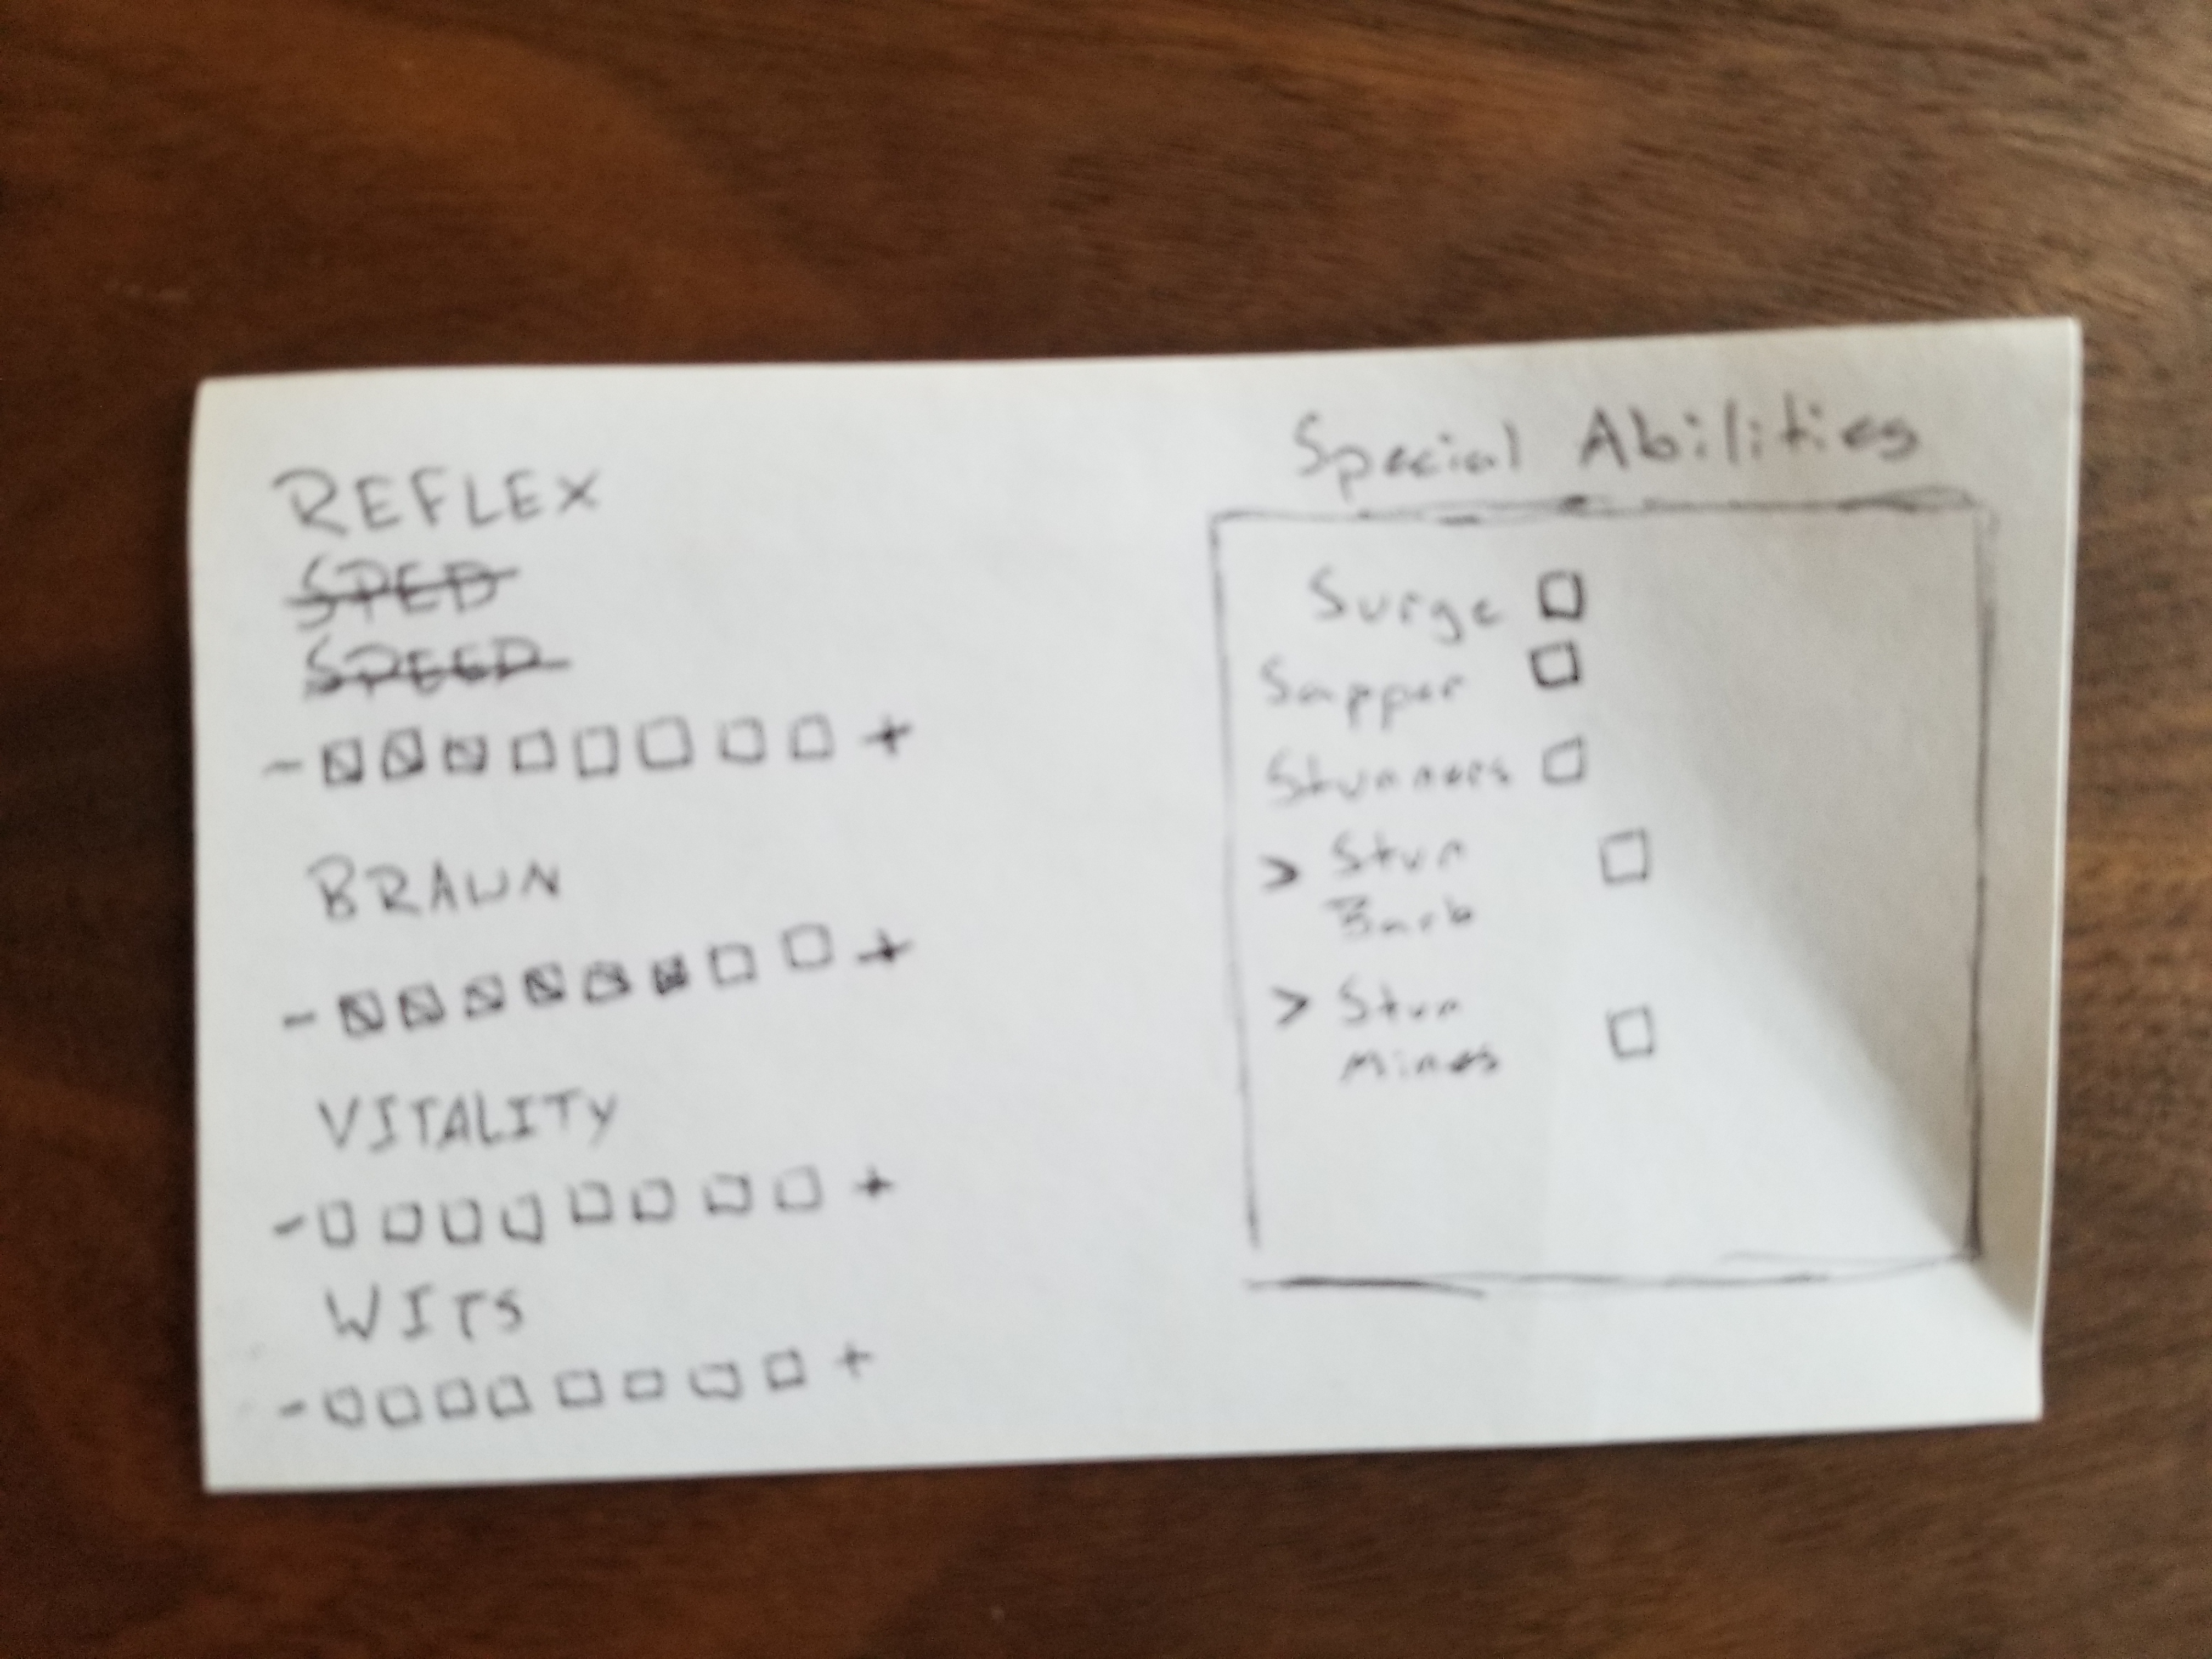 REFLEX
SPED
SPEED
- ☒ ☒ ☒ ☐ ☐ ☐ ☐ ☐ +
BRAWN
- ☒ ☒ ☒ ☒ ☒ ☒ ☐ ☐ +
VITALITY
- ☐ ☐ ☐ ☐ ☐ ☐ ☐ ☐ +
WITS
- ☐ ☐ ☐ ☐ ☐ ☐ ☐ ☐ +
Special Abilities
Surge ☐
Sapper ☐
Stunners ☐
> Stun
Bomb ☐
> Stun
Mines ☐